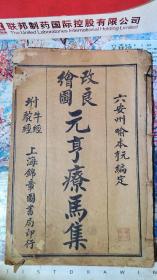 联邦制药国际控股有限公司
The United Laboratories International Holdings Limited
六安州喻本元編定
改良
繪圖
元亨療馬集
附牛經
駝經
上海錦章圖書局印行